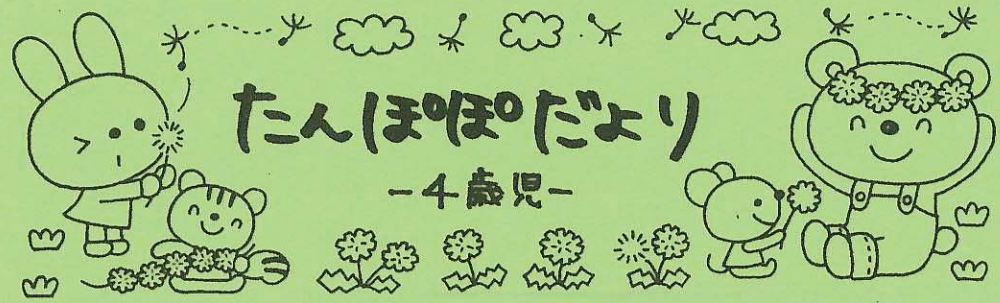 たんぽぽだより
-4歳児-